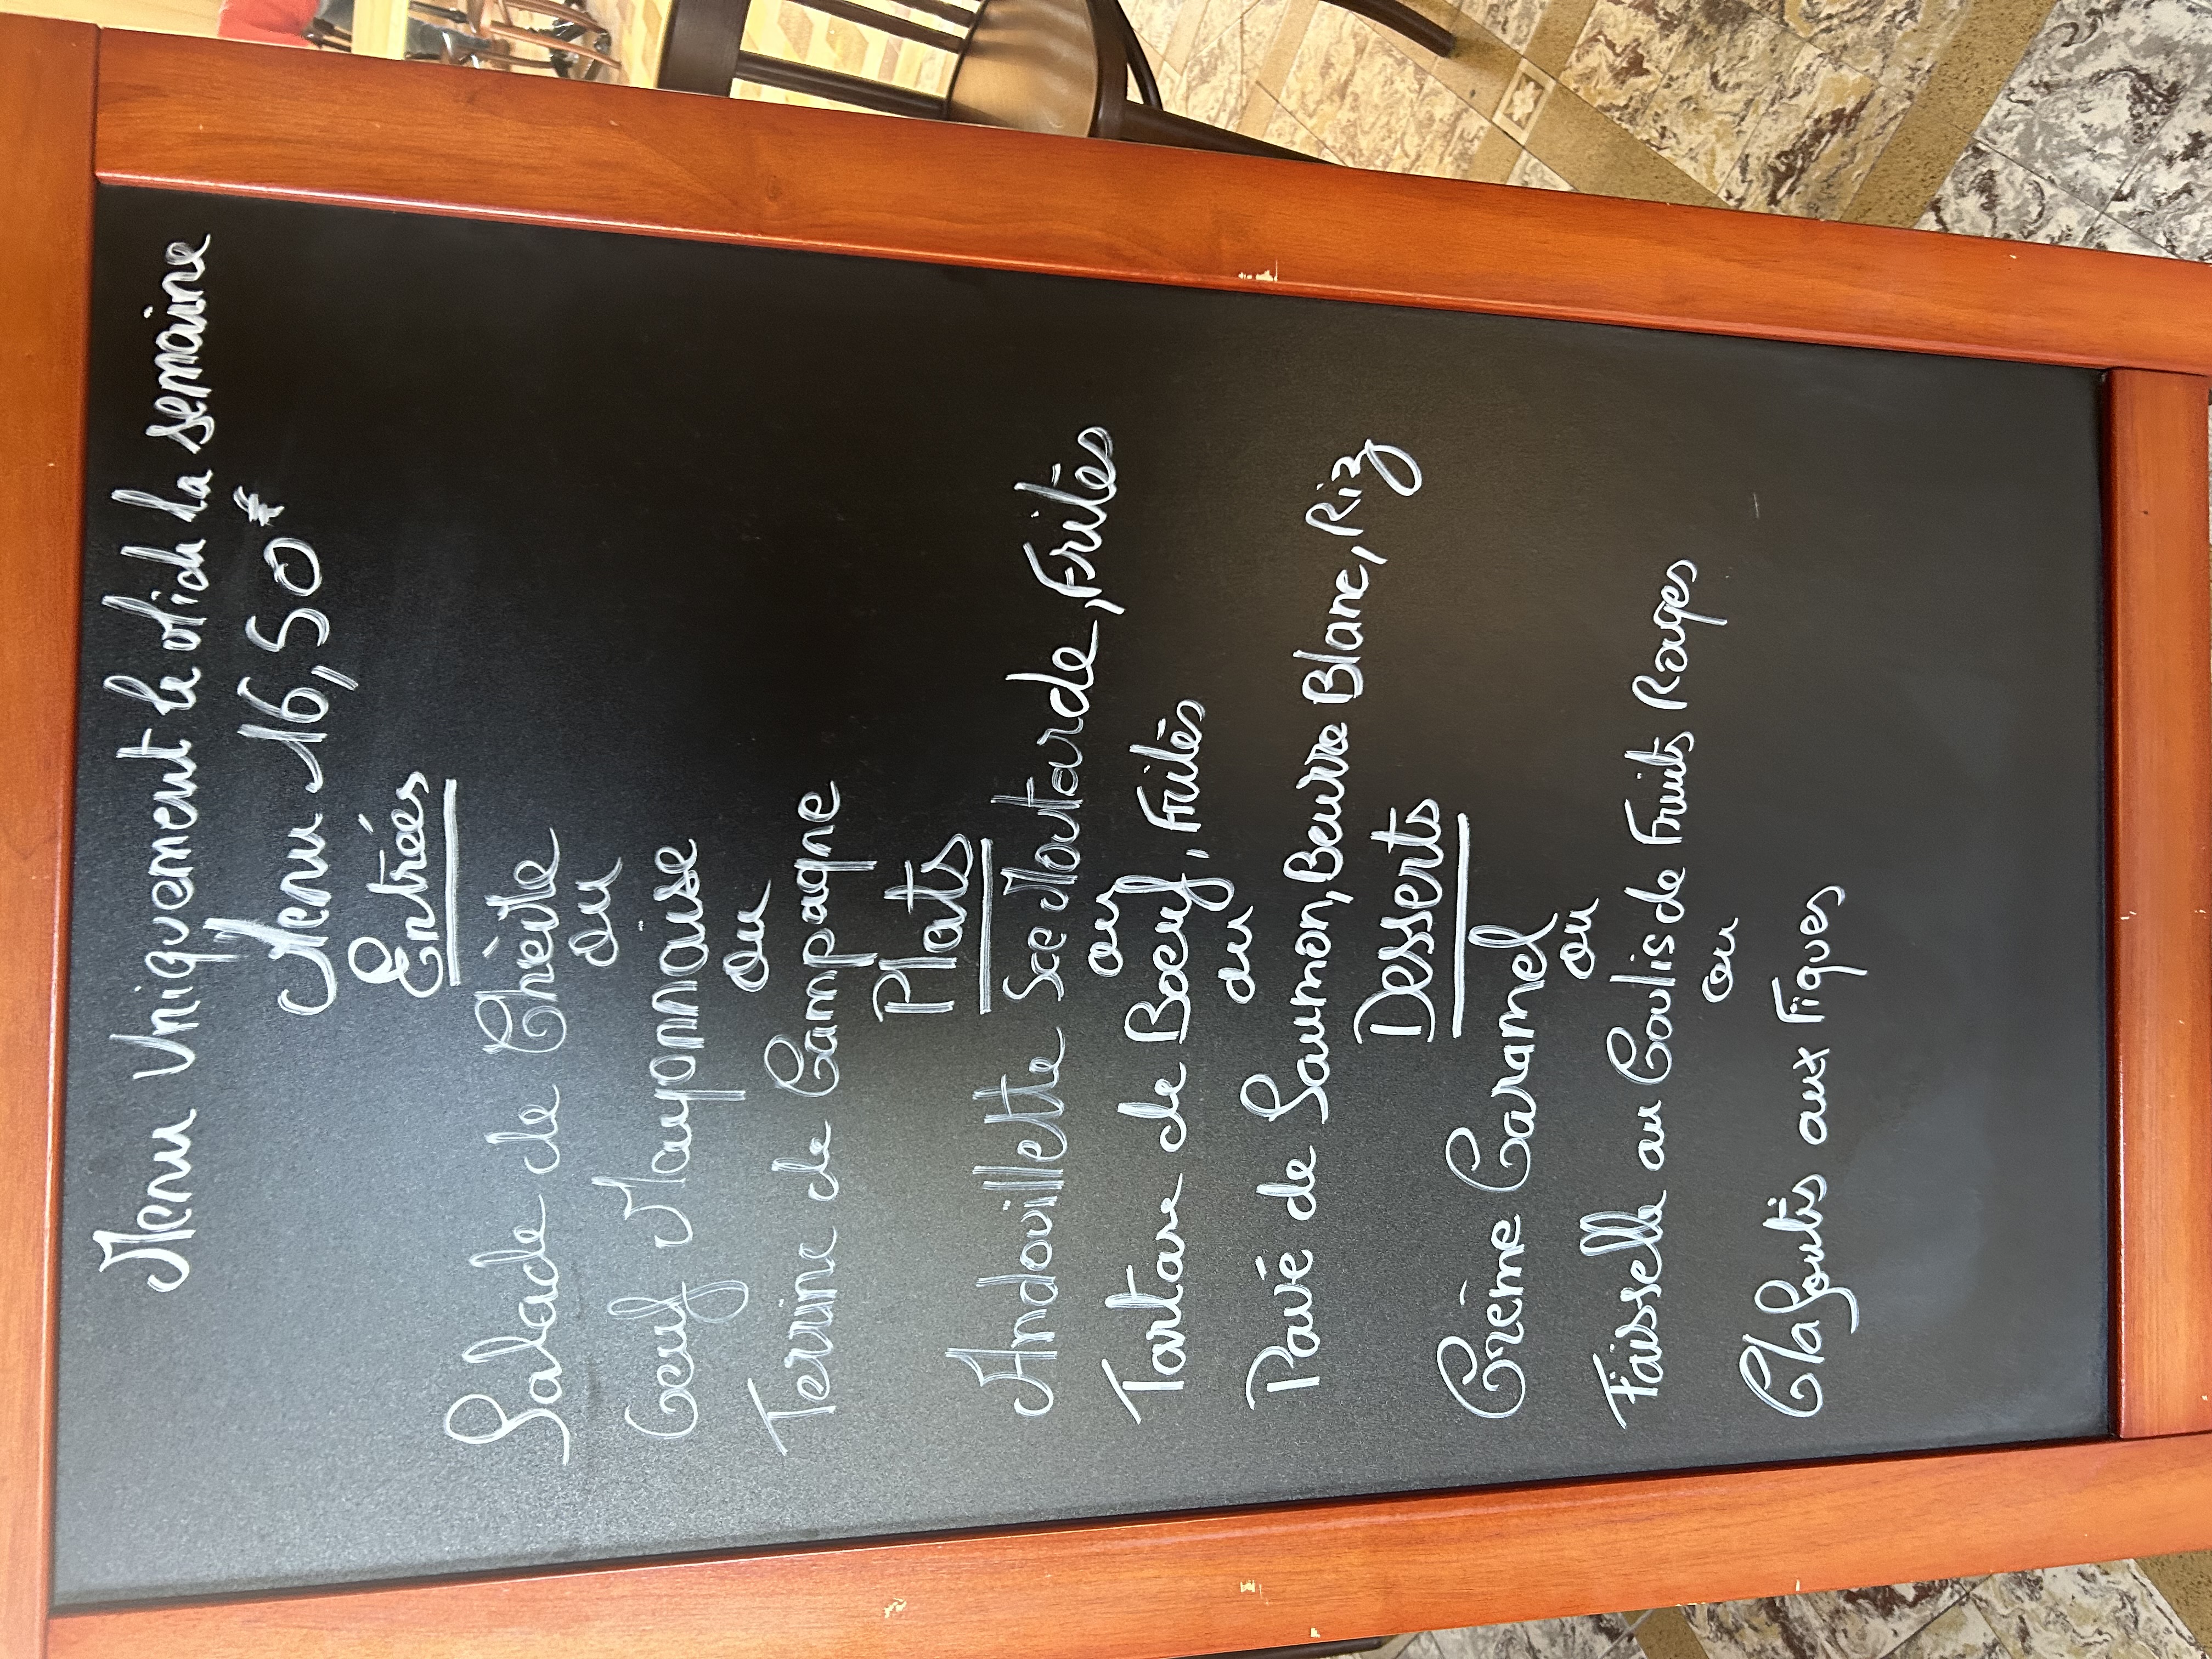 Menu Uniquement le Midi la semaine
Menu 16,50€
Entrées
Salade de Chèvre
ou
Oeuf Mayonnaise
ou
Terrine de Campagne
Plats
Andouillette Sce Moutarde, Frites
ou
Tartare de Boeuf, Frites
ou
Pavé de Saumon, Beurre Blanc, Riz
Desserts
Crème Caramel
ou
Faisselle au Coulis de Fruits Rouges
ou
Clafoutis aux Figues